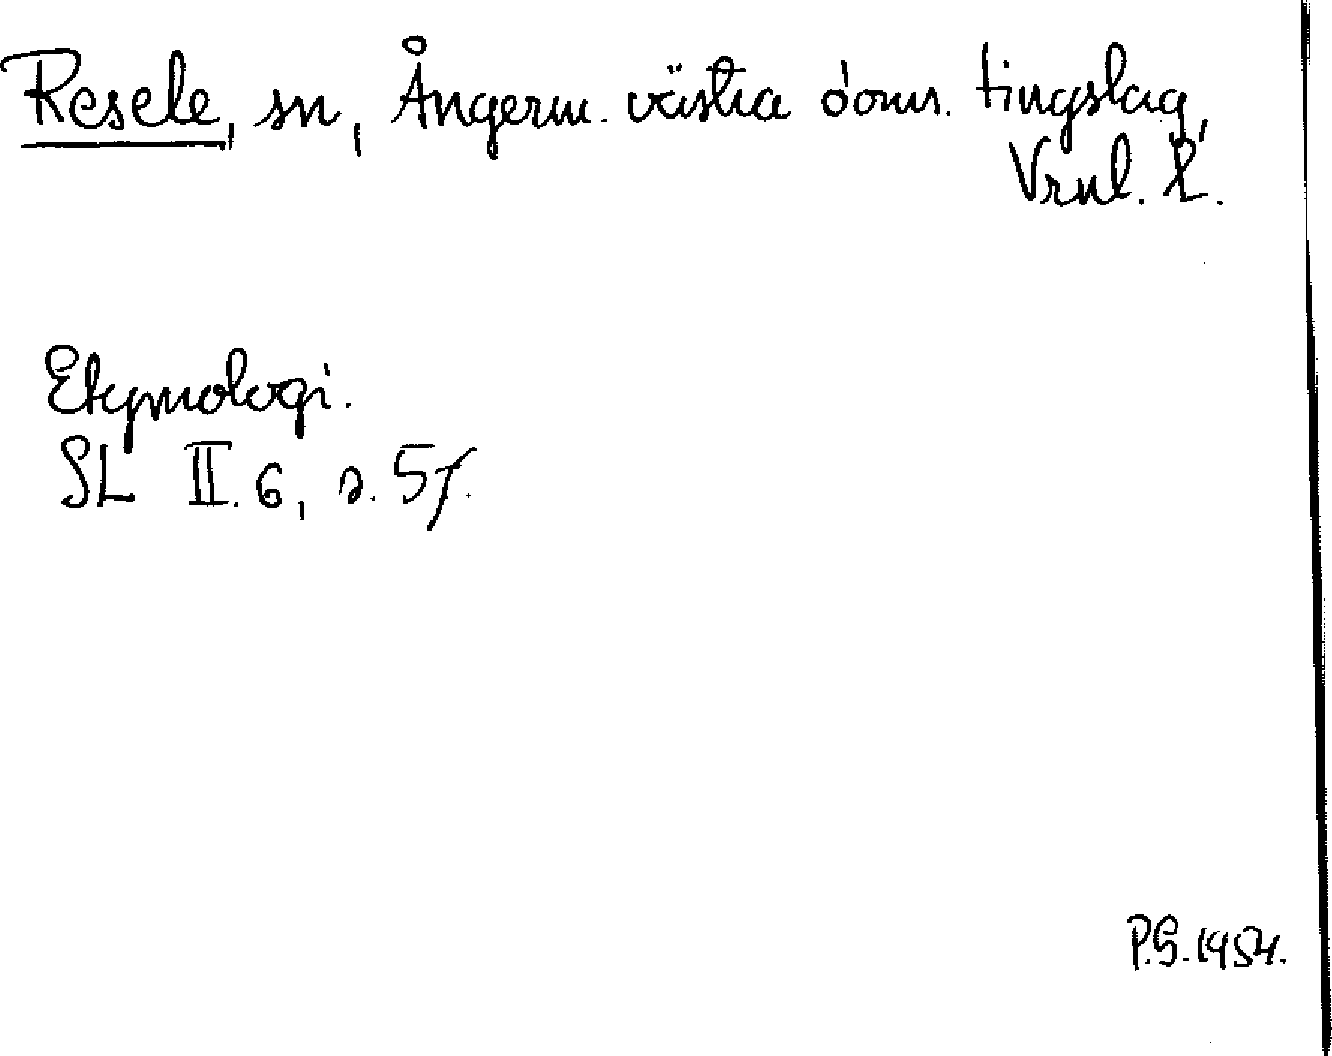 Resele, sn, Ångerm. västra doms. tingslag,
Vrnl. L.
Etymologi.
SL II. 6, s. 57.
P.G. 1954.